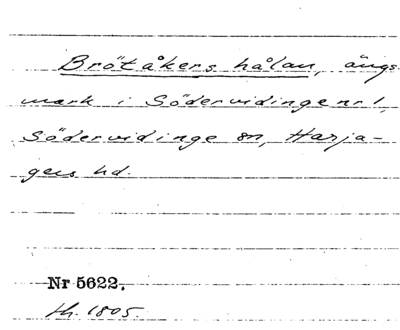 Brötåkers hålan, ängs-
mark i Södervidinge nr 1,
Södervidinge sn, Harja-
gers hd.
Nr 5622.
th. 1805.